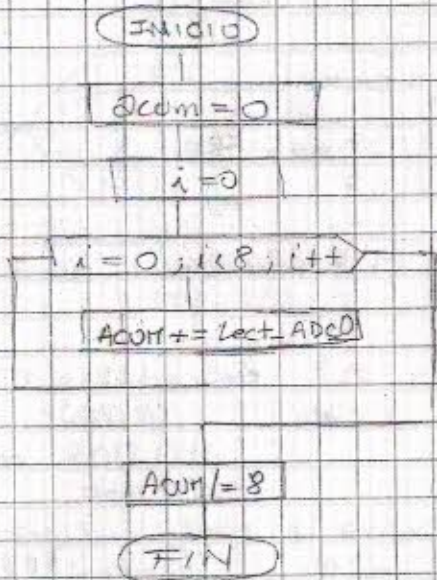 INICIO
acum = 0
i = 0
i = 0 ; i < 8 ; i++
ACUM += Lect_ADC0
ACUM /= 8
FIN